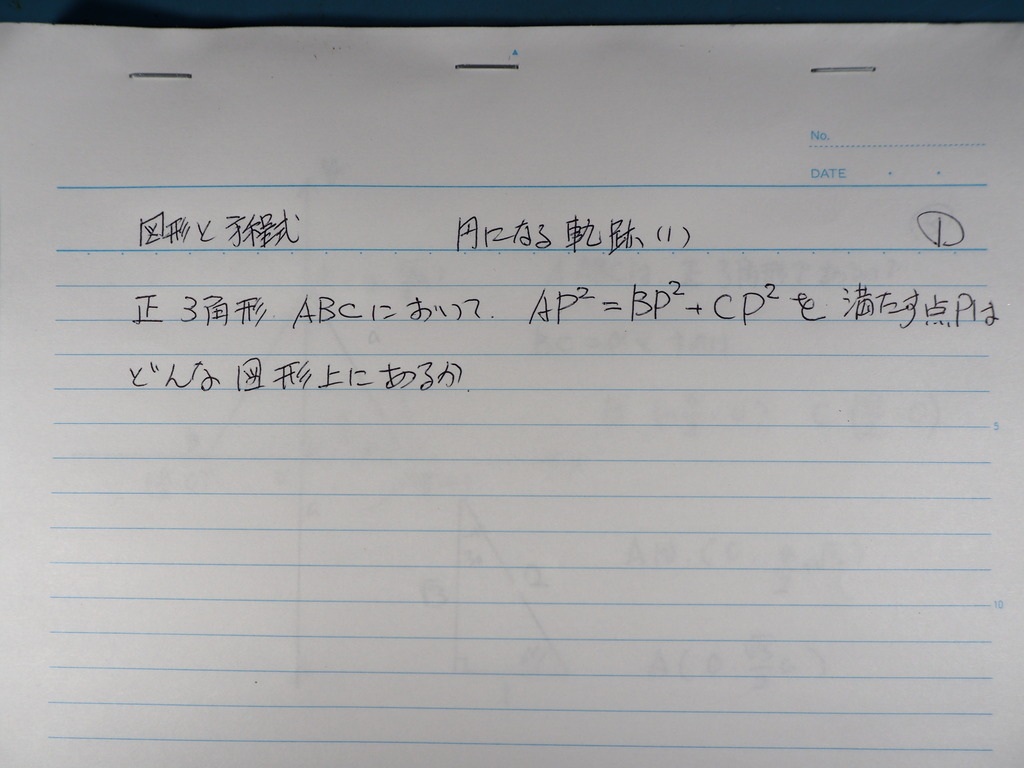 No.
DATE
図形と方程式 円になる軌跡(1) ①
正3角形 ABCにおいて. AP²=BP²+CP²を満たす点Pは
どんな図形上にあるか.
5
10